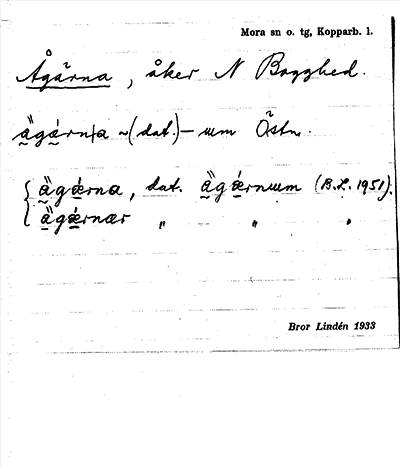 Mora sn o. tg, Kopparb. l.
Ågärna, åker N Bogghed.
a̤̎gǽrn|a ~ (dat.) - ɯm Östn.
{ a̤̎gǽrna, dat. a̤̎gǽrnɯm (B.L. 1951).
a̤̎gǽrnær " " "
Bror Lindén 1933